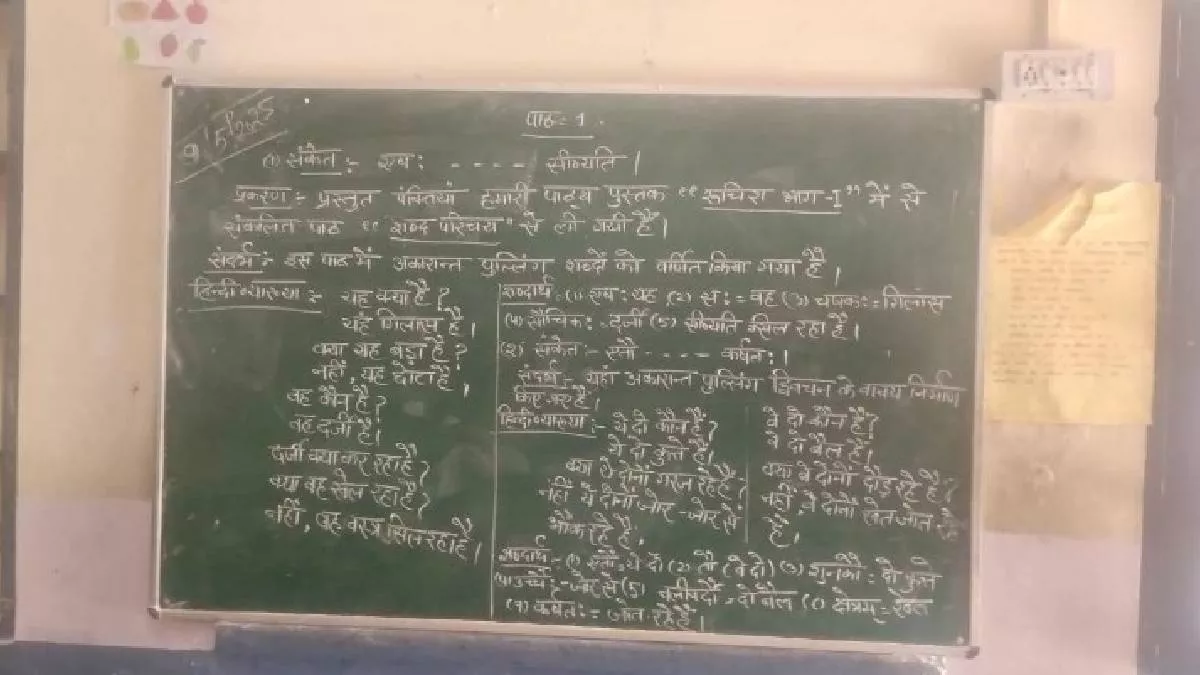 9/5/2025
पाठ- 1
(1) संकेत :- एष : - - - - सीव्यति ।
प्रकरण :- प्रस्तुत पंक्तियां हमारी पाठ्य पुस्तक "रूचिरा भाग-I" में से
संकलित पाठ "शब्द परिचय" से ली गयी है।
संदर्भ :- इस पाठ में अकारान्त पुल्लिंग शब्दों को वर्णित किया गया है।
हिन्दी व्याख्या :- यह क्या है?
यह गिलास है।
क्या यह बड़ा है?
नहीं, यह छोटा है।
वह कौन है?
वह दर्जी है।
दर्जी क्या कर रहा है?
क्या वह खेल रहा है?
नहीं, वह वस्त्र सिल रहा है।
शब्दार्थ - (1) एष : यह (2) स: = वह (3) चषक: = गिलास
(4) सौचिक: = दर्जी (5) सीव्यति = सिल रहा है।
(2) संकेत :- एतौ - - - - कर्षत: ।
संदर्भ - यहां अकारान्त पुल्लिंग द्विवचन के वाक्य निर्माण
किए गए है।
हिन्दी व्याख्या :- ये दो कौन है?
ये दो कुत्ते है।
क्या ये दोनों गरज रहे है?
नहीं ये दोनों जोर-जोर से
भौंक रहे है।
वे दो कौन है?
वे दो बैल है।
क्या वे दोनों दौड़ रहे है?
नहीं, वे दोनों खेत जोत रहे
है।
शब्दार्थ - (1) एतौ = ये दो (2) तौ (वे दो) (3) शुनकौ = दो कुत्ते
(4) उच्चै: - जोर से (5) बलीवर्दौ = दो बैल (6) क्षेत्रम् = खेत
(7) कर्षत: = जोत रहे है।